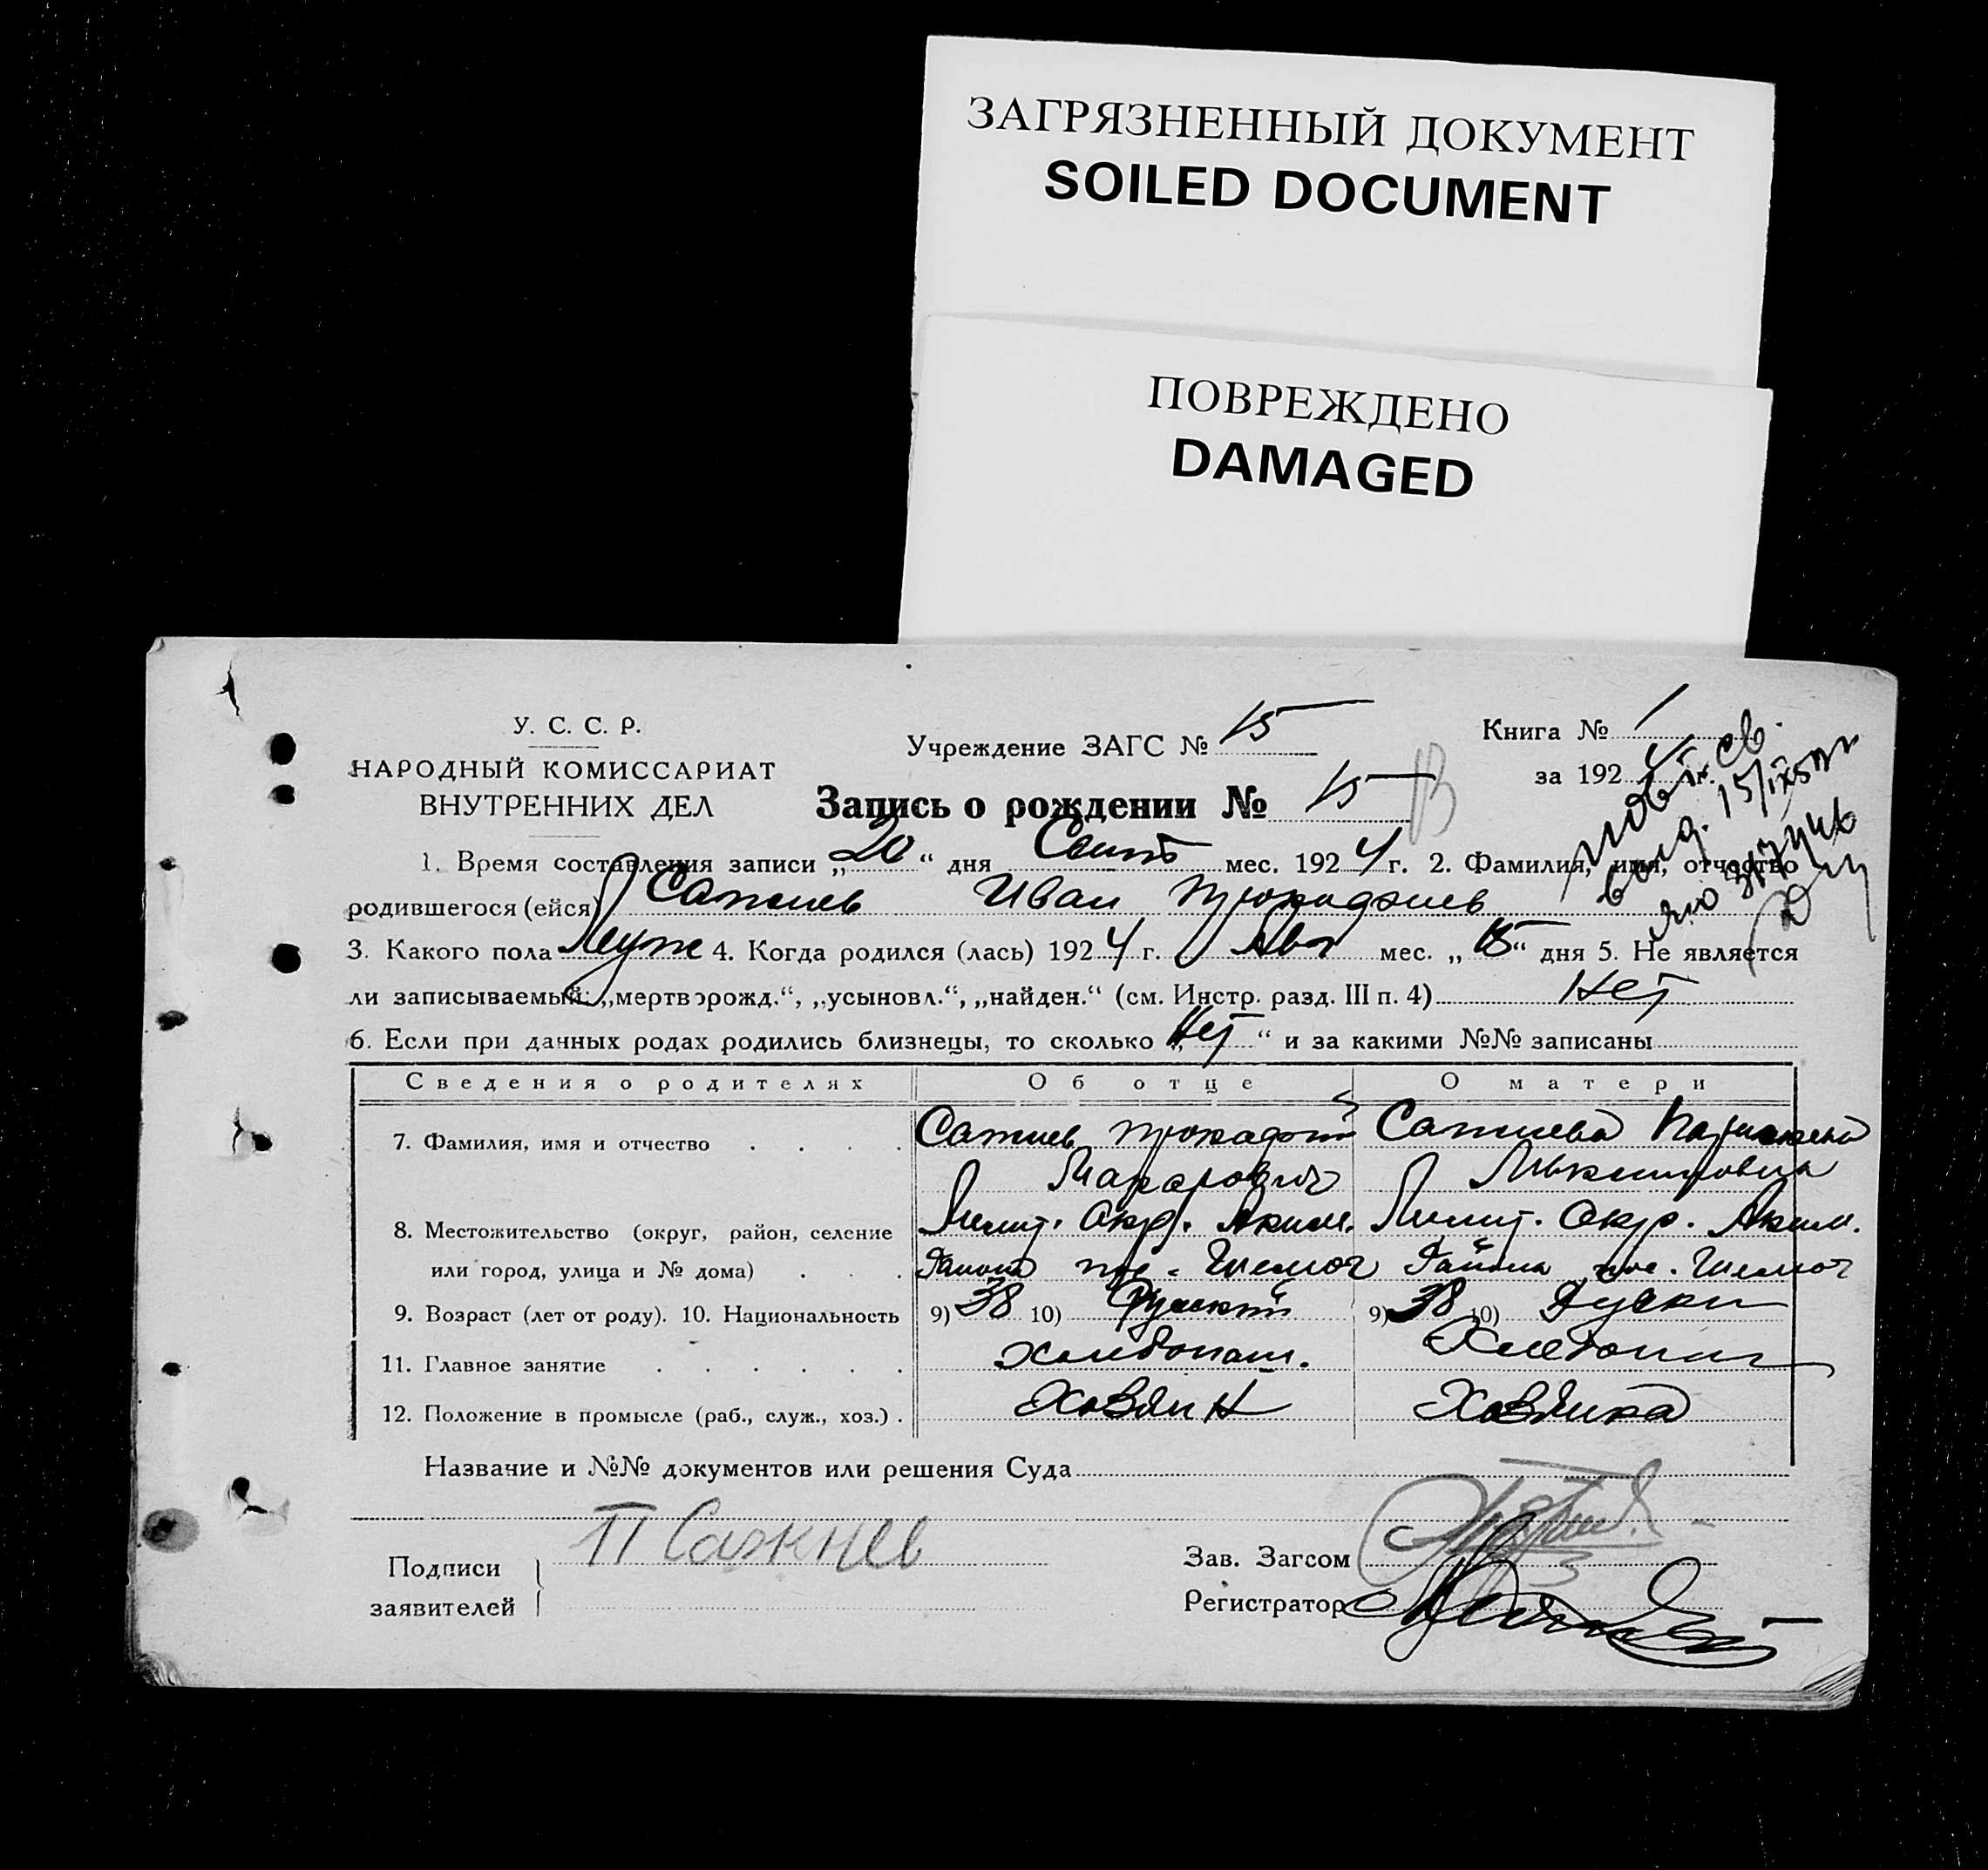 ЗАГРЯЗНЕННЫЙ ДОКУМЕНТ
SOILED DOCUMENT
ПОВРЕЖДЕНО
DAMAGED
У. С. С. Р.
НАРОДНЫЙ КОМИССАРИАТ
ВНУТРЕННИХ ДЕЛ
Учреждение ЗАГС № 15
Книга № 1
за 1924 г.
Запись о рождении № 15
1. Время составления записи „20“ дня Сент мес. 1924 г. 2. Фамилия, имя, отчество
родившегося (ейся) Сажнев Иван
3. Какого пола Муж 4. Когда родился (лась) 1924 г. Авг мес. „15“ дня 5. Не является
ли записываемый: „мертворожд.“, „усыновл.“, „найден.“ (см. Инстр. разд. III п. 4) Нет
6. Если при данных родах родились близнецы, то сколько „Нет“ и за какими №№ записаны
Сведения о родителях Об отце О матери
7. Фамилия, имя и отчество . . . . Сажнев Сажнева
Макарович
8. Местожительство (округ, район, селение Мелит. Окр. Аким. Мелит. Окр. Аким.
или город, улица и № дома) . . . Района Района
9. Возраст (лет от роду). 10. Национальность 9) 38 10) Руский 9) 38 10) Руски
11. Главное занятие . . . . . .
12. Положение в промысле (раб., служ., хоз.) . Хозяин Хозяика
Название и №№ документов или решения Суда
Подписи П Сажнев Зав. Загсом
заявителей Регистратор